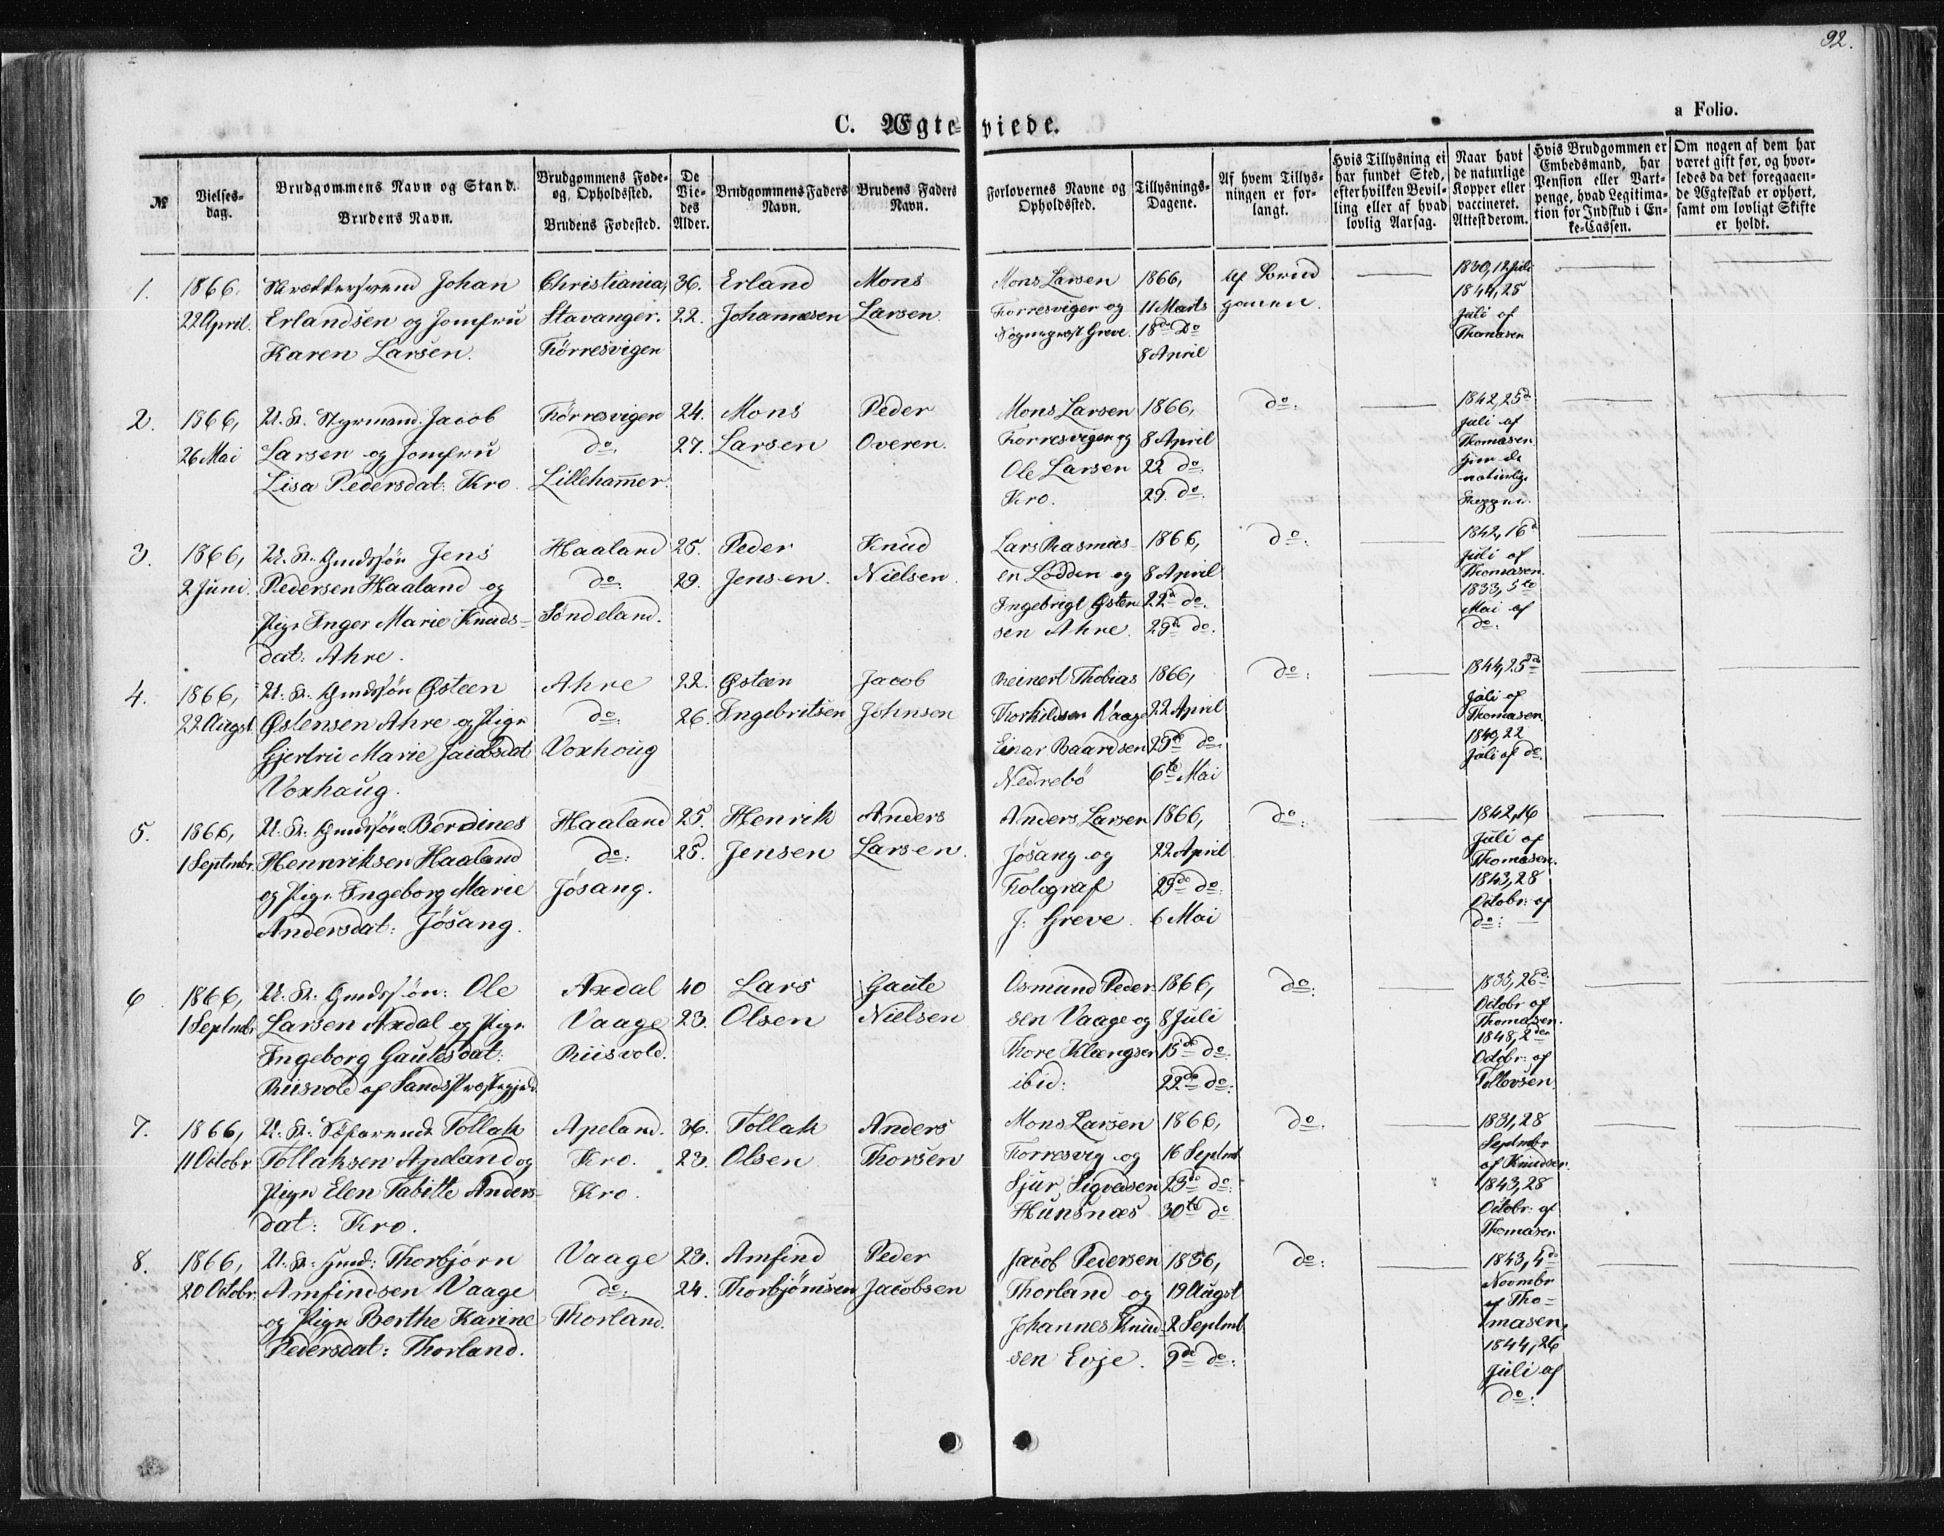 92.
a Folio.
C. Ægteviede.
№
Vielses-dag.
Brudgommens Navn og Stand.
Brudens Navn.
Brudgommens Føde- og Opholdssted.
Brudens Fødested.
De Vie-des Alder.
Brudgommens Faders Navn.
Brudens Faders Navn.
Forlovernes Navne og Opholdssted.
Tillysnings-Dagene.
Af hvem Tillys-ningen er for-langt.
Hvis Tillysning ei har fundet Sted, efter hvilken Bevil-ling eller af hvad lovlig Aarsag.
Naar havt de naturlige Kopper eller vaccineret. Attest derom.
Hvis Brudgommen er Embedsmand, har Pension eller Vart-penge, hvad Legitima-tion for Indskud i En-ke-Cassen.
Om nogen af dem har været gift før, og hvor-ledes da det foregaaen-de Ægteskab er ophørt, samt om lovligt Skifte er holdt.
1. 1866, Skræddersvend Johan Christiania, 36. Erland Mons Mons Larsen 1866, Af Brud 1830, 12 Juli
22 April. Erlandsen og Jomfru Stavanger. 22. Johannesen Larsen Torresvigen og 11 Marts gommen. 1844, 25
Karen Larsen. Tørresvigen Sognepræst Greve. 18de Do Juli af
8 April Thomasen
2. 1866, U. K. Styrmand Jacob Tørresvigen 24. Mons Peder Mons Larsen 1866, do: 1842, 25d
26 Mai Larsen og Jomfru do: 27. Larsen Overen. Torresvigen og 8 April Juli af
Lisa Pedersdat: Kro. Lillehammer. Ole Larsen 22 do: Thomasen
Kro. 29 do: Hun de
naturlige
Kopper.
3. 1866, U. K. Gmdssøn Jens Haaland 25. Peder Knud Lars Rasmus- 1866, do: 1842, 16d
2 Juni. Pedersen Haaland og do: 29. Jensen. Nielsen. en Lodden og 8 April Juli af
Pige Inger Marie Knuds- Søndeland. Ingebrigt Østen 22d do. Thomasen.
dat: Ahre. sen Ahre. 29de do. 1833, 5te
Mai af
do:
4. 1866, U. K. Gmdssøn Østeen Ahre 22. Østeen Jacob Reinert Thobias 1866, do: 1844, 25de
22 Augst. Østensen Ahre og Pige do: 26. Ingebritsen Johnsen Thorkildsen Vaage 22 April Juli af
Gjertru Marie Jacobsdat Voxhoug Einar Baardsen 29de do: Thomasen
Voxhaug. Nedrebö 6te Mai 1840, 22
Juli af do.
5. 1866, U. K. Gmdssøn Berdines Haaland 25. Henrik Anders Anders Larsen 1866, do: 1842, 16
1 Septmbr. Hennriksen Haaland do: 25. Jensen Larsen. Jøsang og 22 April Juli af
og Pige Ingeborg Marie Jøsang. Fotograf 29de do: Thomasen.
Andersdat: Jøsang. J: Greve. 6 Mai 1843, 28
Octobr: af
do:
6 1866, U. K: Gmdssøn: Ole Axdal 40 Lars Gaute Osmund Peder- 1866, do: 1835, 26d
1 Septmbr. Larsen Axdal og Pige Vaage 23. Olsen Nielsen sen Vaage og 8 Juli Octobr af
Ingeborg Gautesdat: Riisvold. Thore Klængsen 15de do: Thomasen.
Riisvold af Sands Præstegjæld. ibid: 22de do: 1848, 2den
Octobr: af
Tollevsen
7. 1866, U. K: Søfarende Tollak Apeland. 36. Tollak Anders Mons Larsen 1866, do: 1831, 28
11 Octobr Tollaksen Apeland og Kro. 23. Olsen Thorsen Torresvig og 16 Septmb. Septmbr
Pige Elen Tabitte Anders- Kro. Sjur Sigvedsen 23de do: af Knudsen.
dat: Kro. Hunsnæs 30te do 1843, 28
Octobr: af
Thomasen
8. 1866, U. K: Gmd: Thorbjørn Vaage 23. Amfind Peder Jacob Pedersen 1856, do: 1843, 4de
20 Octobr. Amfindsen Vaage do: 24. Thorbjørnsen Jacobsen Thorland og 19 Augst Novmbr
og Pige Berthe Karine Thorland. Johannes Knud- 2 Septmb. af Tho-
Pedersdat: Thorland. sen Evje. 9de do: masen,
1844, 26
Juli af
do: